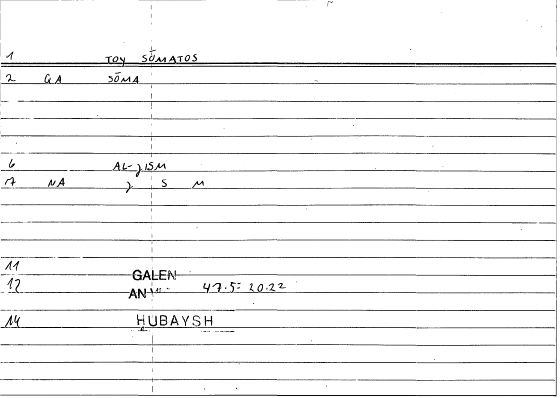 1 TOY SŌMATOS
2 GA SŌMA
6 AL-ǧISM
7 NA ǧ S M
11 GALEN
12 AN 47.5: 20.22
14 ḤUBAYSH